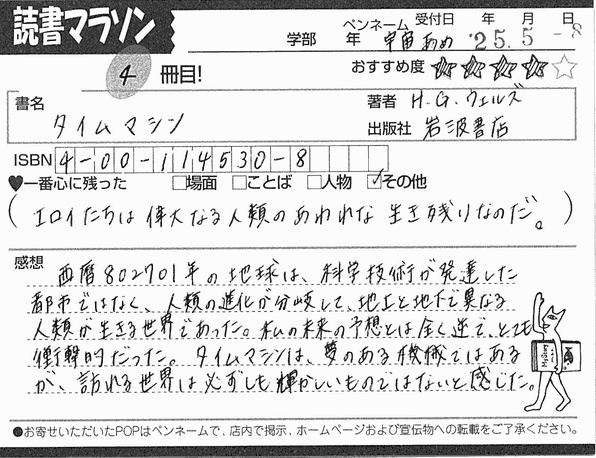 読書マラソン
4 冊目!
学部 年 ペンネーム 宇宙あめ 受付日 '25年 5月 -8日
おすすめ度 ★★★★☆
書名 タイムマシン
著者 H.G.ウェルズ
出版社 岩波書店
ISBN 4-00-114530-8
♥一番心に残った □場面 □ことば □人物 ☑その他
(エロイたちは偉大なる人類のあわれな生き残りなのだ。)
感想 西暦802701年の地球は、科学技術が発達した
都市ではなく、人類の進化が分岐して、地上と地下で異なる
人類が生きる世界であった。私の未来の予想とは全く逆で、とても
衝撃的だった。タイムマシンは、夢のある機械ではある
が、訪れる世界は必ずしも輝かしいものではないと感じた。
●お寄せいただいたPOPはペンネームで、店内で掲示、ホームページおよび宣伝物への転載をご了承ください。